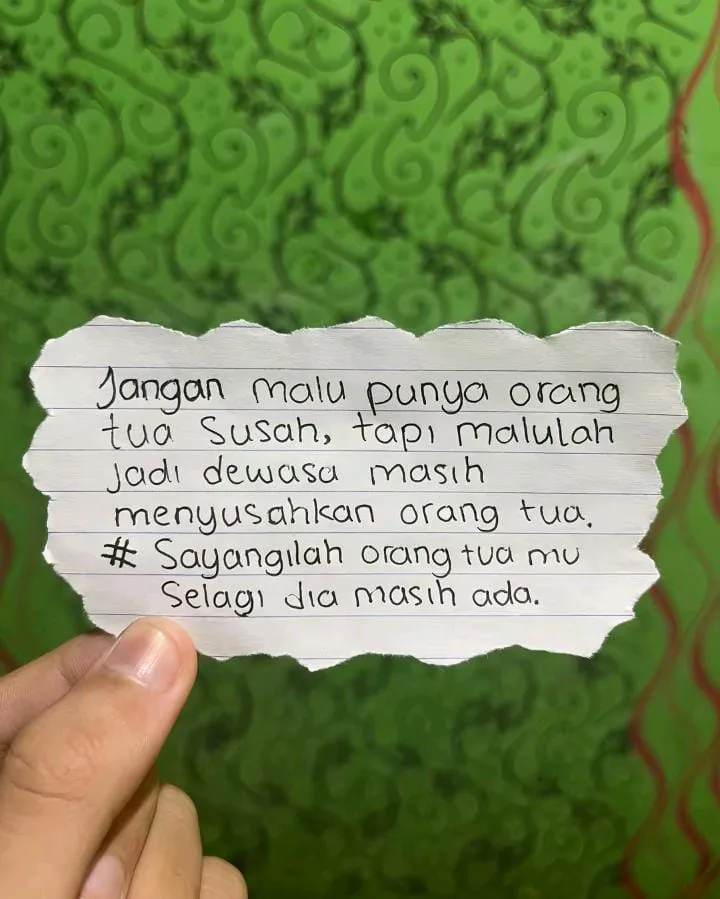 Jangan malu punya orang
tua Susah, tapi malulah
Jadi dewasa masih
menyusahkan orang tua.
# Sayangilah orang tua mu
Selagi dia masih ada.